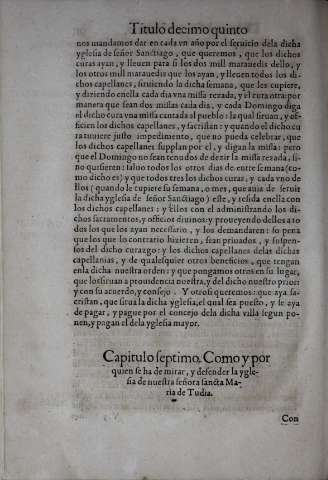 Titulo decimo quinto
nos mandamos dar en cada vn año por el seruicio dela dicha
yglesia de señor Sanctiago, que queremos, que los dichos
curas ayan, y lleuen para si los dos mill marauedis dello, y
los otros mill marauedis que los ayan, y lleuen todos los di-
chos capellanes, siruiendo la dicha semana, que les cupiere,
y diziendo enella cada dia vna missa rezada, y el cura otra: por
manera que sean dos missas cada dia, y cada Domingo diga
el dicho cura vna missa cantada al pueblo: la qual siruan, y of-
ficien los dichos capellanes, y sacristan: y quando el dicho cu
ra tuuiere justo impedimento, que no pueda celebrar, que
los dichos capellanes supplan por el, y digan la missa: pero
que el Domingo no sean tenudos de dezir la missa rezada, si-
no quisieren: saluo todos los otros dias de entre semana (co-
mo dicho es) y que todos tres los dichos curas, y cada vno de
llos (quando le cupiere su semana, o mes, que auia de seruir
la dicha yglesia de señor Sanctiago) este, y resida enella con
los dichos capellanes: y ellos con el administrando los di-
chos sacramentos, y officios diuinos, y proueyendo dellos a to
dos los que los ayan necessario, y los demandaren: so pena
que los que lo contrario hizieren, sean priuados, y suspen-
sos del dicho curazgo: y los dichos capellanes delas dichas
capellanias, y de qualesquier otros beneficios, que tengan
enla dicha nuestra orden: y que pongamos otros en su lugar,
que los siruan a prouidencia nuestra, y del dicho nuestro prior:
y con su acuerdo, y consejo. Y otrosi queremos: que aya sa-
cristan, que sirua la dicha yglesia, el qual sea puesto, y se aya
de pagar, y pague por el concejo dela dicha villa segun po-
nen, y pagan el dela yglesia mayor.
Capitulo septimo. Como y por
quien se ha de mirar, y defender la ygle-
sia de nuestra señora sancta Ma-
ria de Tudia.
Con